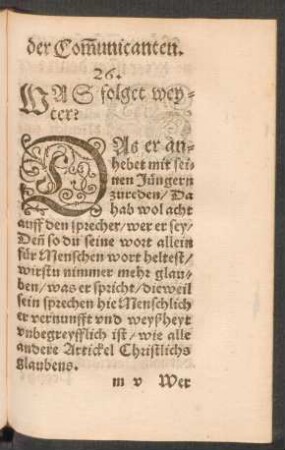 der Com̃unicanten.
26.
WAS folget wey-
ter?
DAs er an-
hebet mit sei-
nen Jüngern
zureden/ Da
hab wol acht
auff den sprecher/ wer er sey/
Deñ so du seine wort allein
für Menschen wort heltest/
wirstu nimmer mehr glau-
ben/ was er spricht/ dieweil
sein sprechen hie Menschlich
er vernunfft vnd weyßheyt
vnbegreyfflich ist/ wie alle
andere Artickel Christlichs
Glaubens.
m v Wer